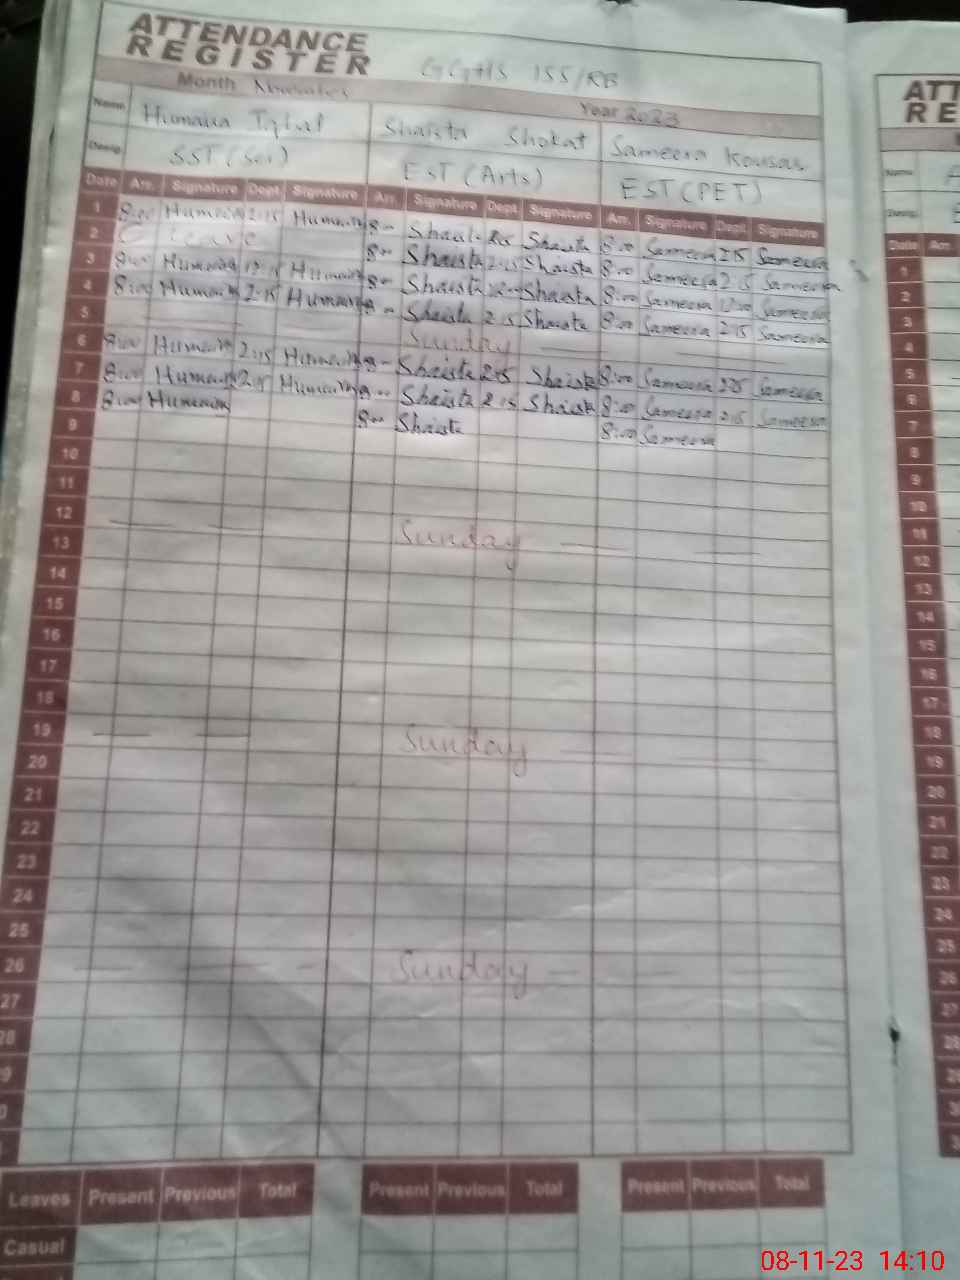 ATTENDANCE
REGISTER
GGHS 155/RB
Month November Year 2023
Name Humaira Iqbal Shaista Shokat Sameera Kousar
Desig. SST(Sci) EST(Arts) EST(PET)
Date Arr. Signature Dept. Signature Arr. Signature Dept. Signature Arr. Signature Dept. Signature
1 8:00 Humaira 2:15 Humaira 8:00 Shaista 2:15 Shaista 8:00 Sameera 2:15 Sameera
2 C leave 8:00 Shaista 2:15 Shaista 8:00 Sameera 2:15 Sameera
3 8:00 Humaira Humaira 8:00 Shaista Shaista 8:00 Sameera 12:00 Sameera
4 8:00 Humaira 2:15 Humaira 8:00 Shaista 2:15 Shaista 8:00 Sameera 2:15 Sameera
5 Sunday
6 8:00 Humaira 2:15 Humaira 8:00 Shaista 2:15 Shaista 8:00 Sameera 2:15 Sameera
7 8:00 Humaira 2:15 Humaira 8:00 Shaista 2:15 Shaista 8:00 Sameera 2:15 Sameera
8 8:00 Humaira 8:00 Shaista 8:00 Sameera
9
10
11
12 Sunday
13
14
15
16
17
18
19 Sunday
20
21
22
23
24
25
26 Sunday
27
28
9
0
Leaves Present Previous Total Present Previous Total Present Previous Total
Casual
ATT
RE
Name
Desig.
Date Arr.
1
2
3
4
5
6
7
8
9
10
11
12
13
14
15
16
17
18
19
20
21
22
23
24
25
26
27
28
29
3
3
08-11-23 14:10